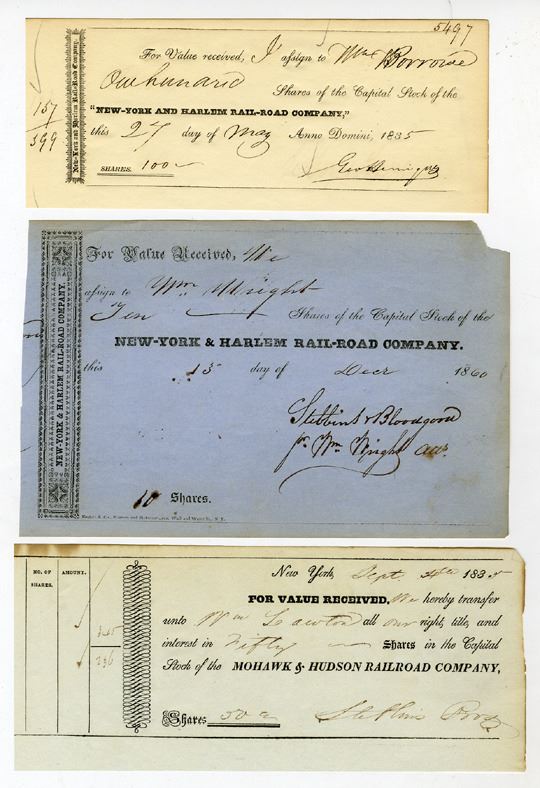 5497
For Value received, I assign to Wm
One hundred Shares of the Capital Stock of the
"NEW-YORK AND HARLEM RAIL-ROAD COMPANY,"
this 27 day of May Anno Domini, 1835
SHARES. 100
New-York and Harlem Rail-Road Company.
157
399
For Value Received, We
assign to Wm Wright
Ten Shares of the Capital Stock of the
NEW-YORK & HARLEM RAIL-ROAD COMPANY.
this 13 day of Decr 1860
Stebbins & Bloodgood
Wm Wright
10 Shares.
NEW-YORK & HARLEM RAIL-ROAD COMPANY.
NO. OF SHARES.
AMOUNT.
236
New York, Sept. 1835
FOR VALUE RECEIVED, We hereby transfer
unto Wm Lawton all our right, title, and
interest in Fifty Shares in the Capital
Stock of the MOHAWK & HUDSON RAILROAD COMPANY,
Shares 50